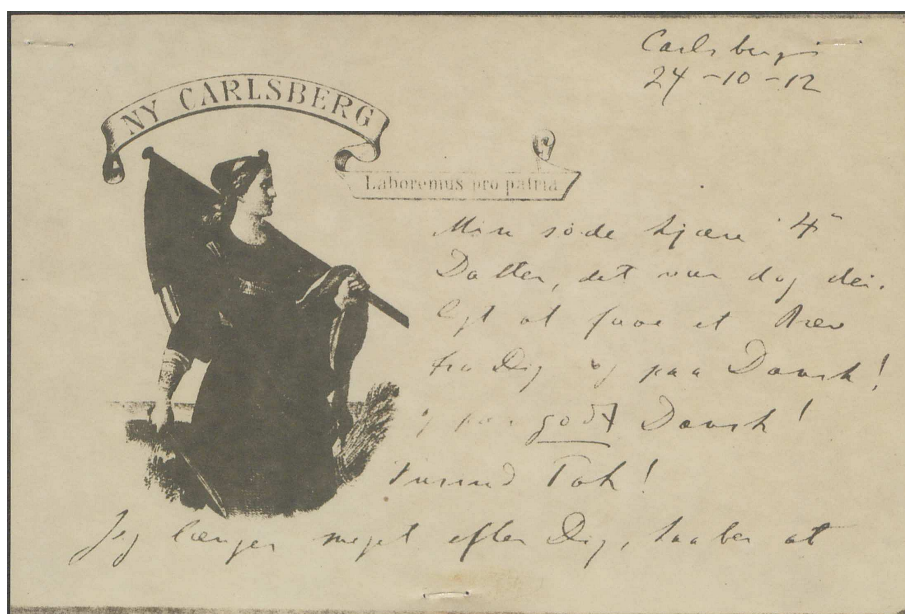 Carlsberg
24-10-12
NY CARLSBERG
Laboremus pro patria
Min søde kjære 4
Datter, det var dog dei-
ligt at faae et Brev
fra Dig og paa Dansk!
og paa godt Dansk!
Tusind Tak!
Jeg længes meget efter Dig, haaber at